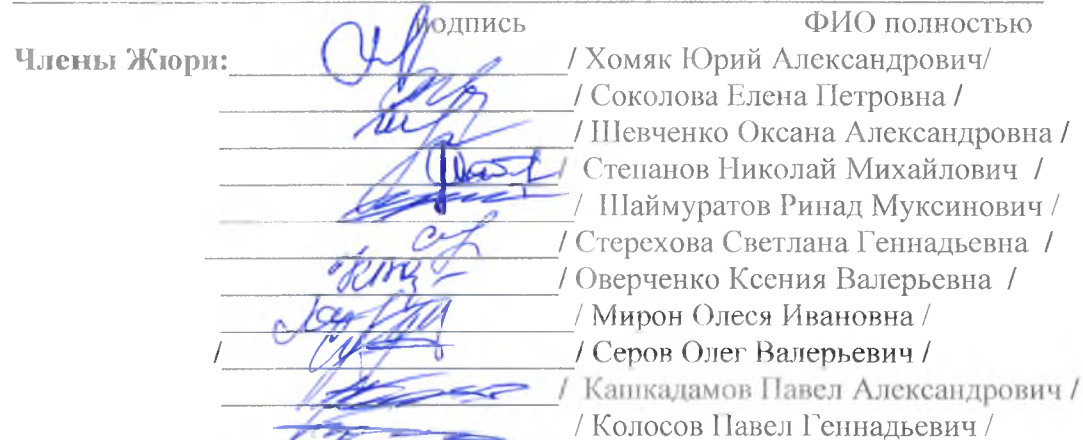 подпись ФИО полностью
Члены Жюри: / Хомяк Юрий Александрович/
/ Соколова Елена Петровна /
/ Шевченко Оксана Александровна /
/ Степанов Николай Михайлович /
/ Шаймуратов Ринад Муксинович /
/ Стерехова Светлана Геннадьевна /
/ Оверченко Ксения Валерьевна /
/ Мирон Олеся Ивановна /
/ / Серов Олег Валерьевич /
/ Кашкадамов Павел Александрович /
/ Колосов Павел Геннадьевич /